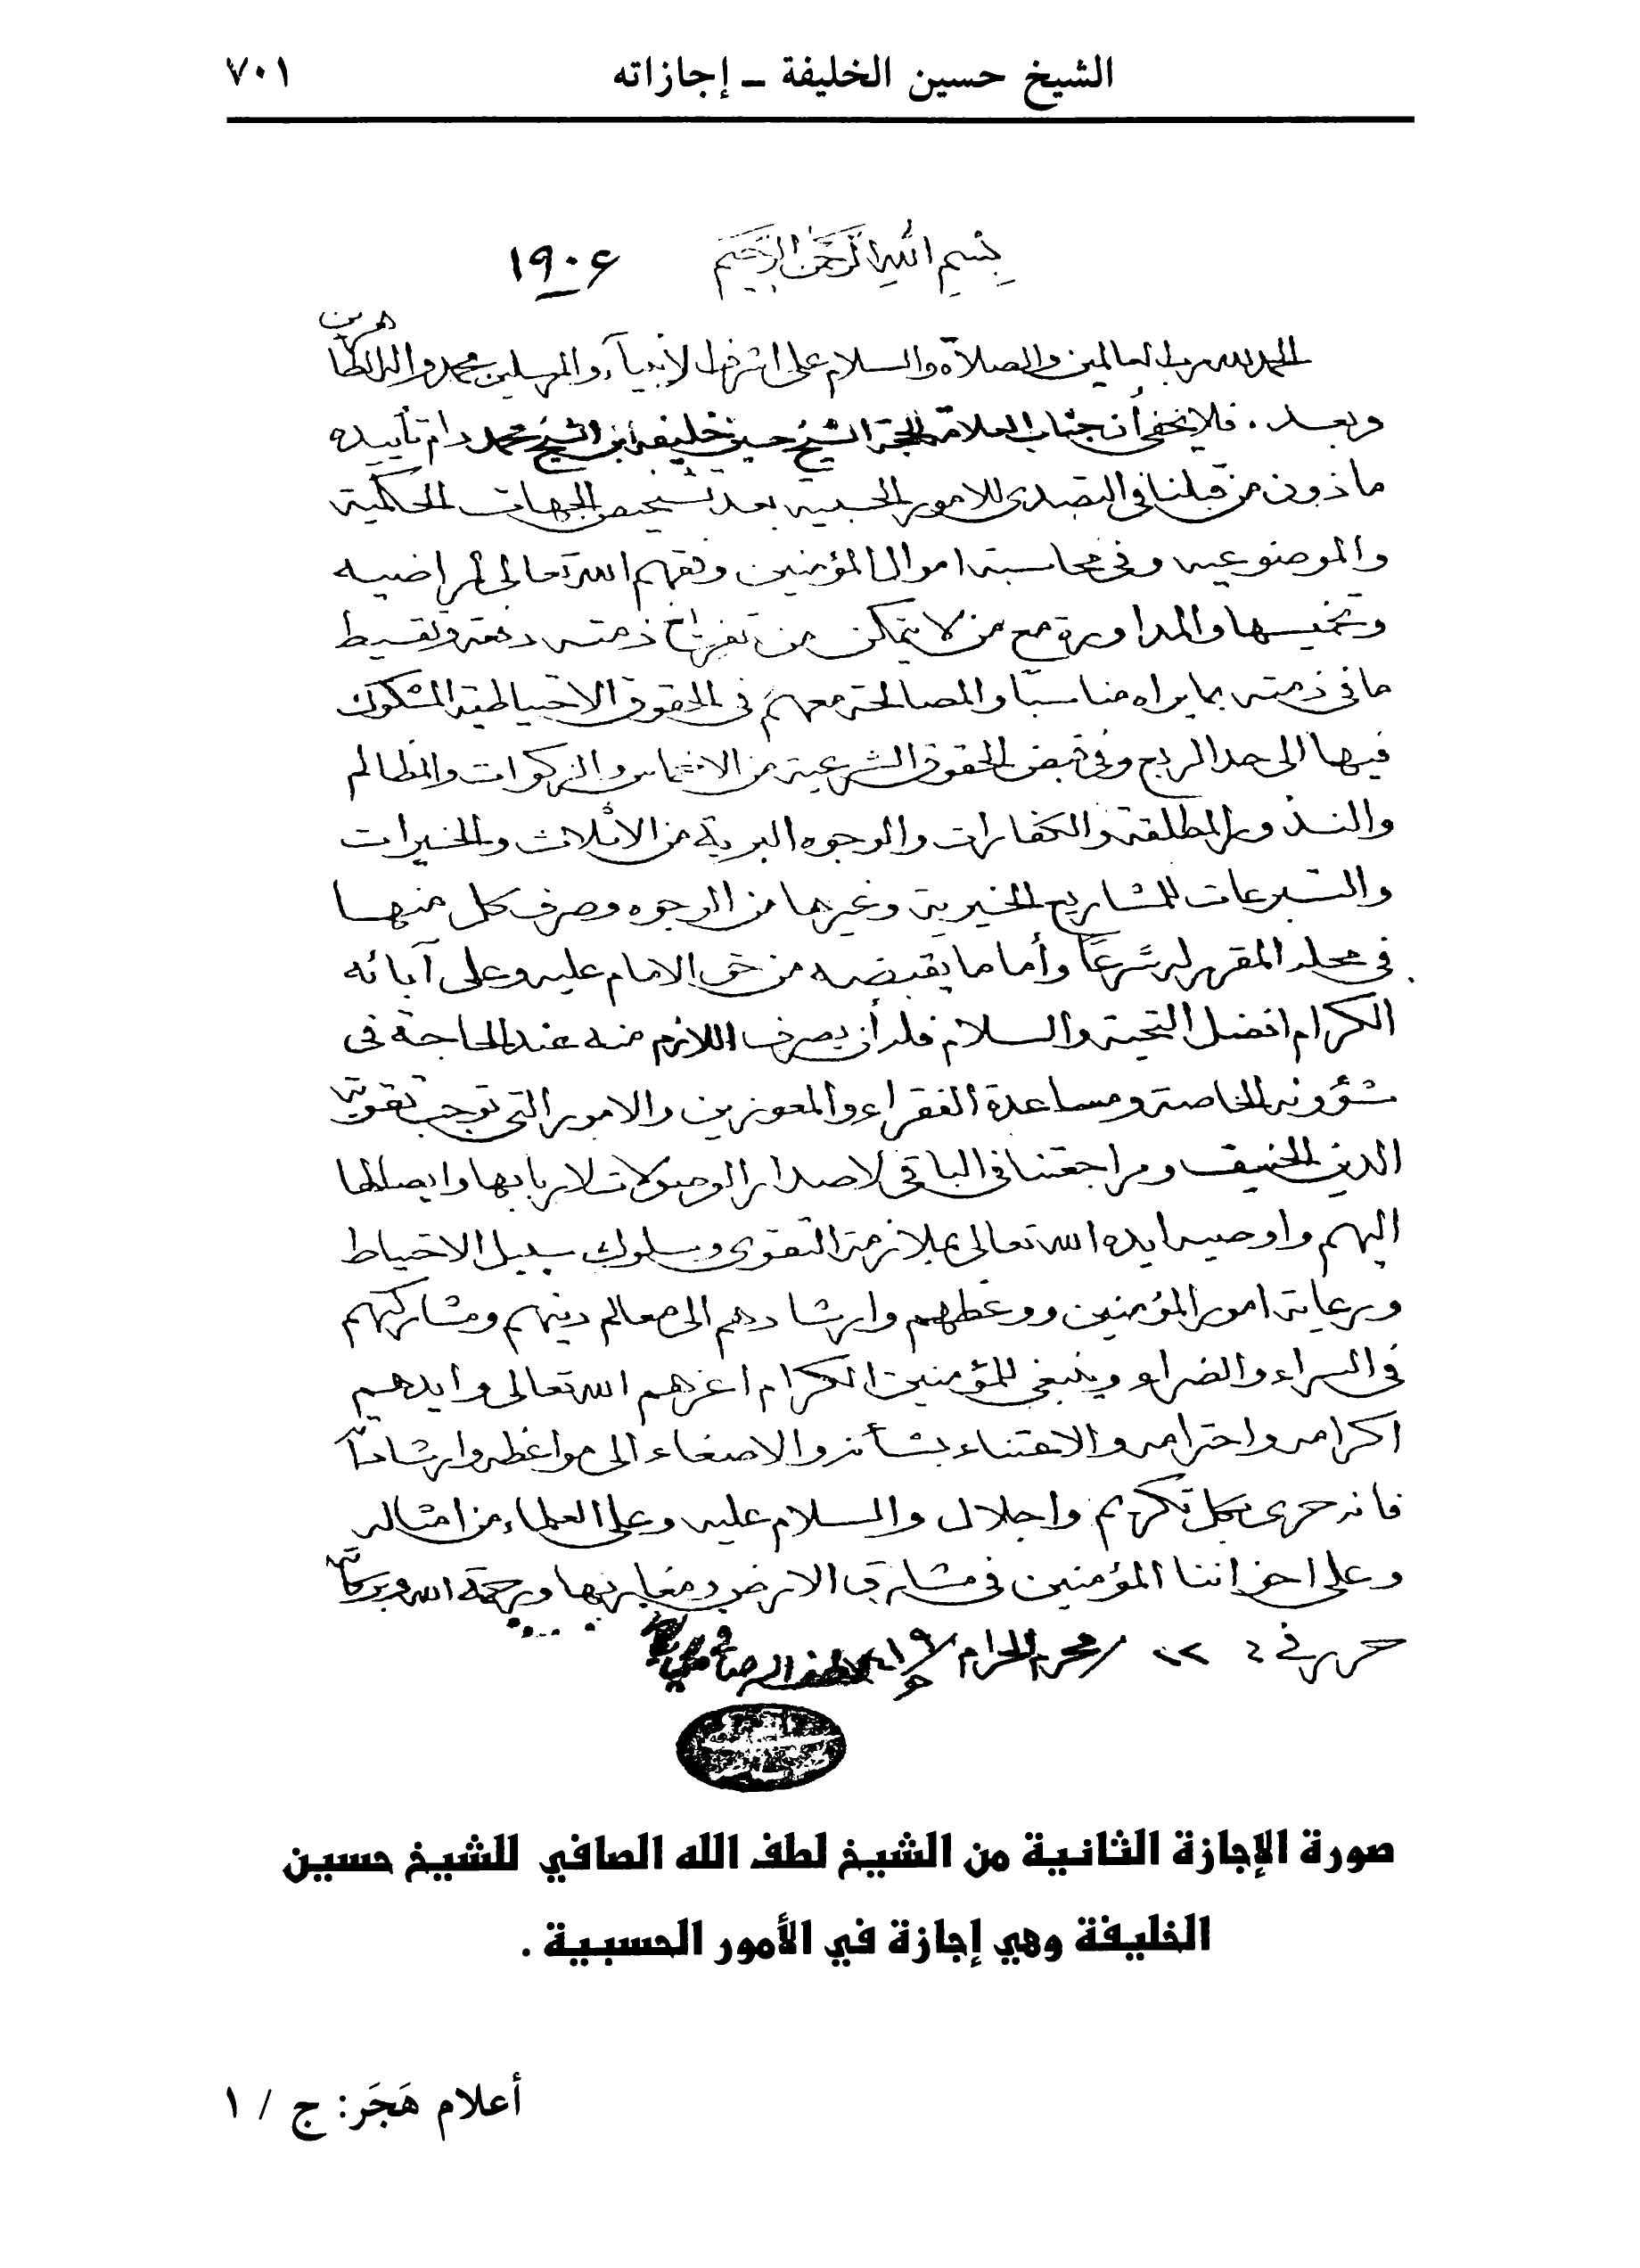 الشيخ حسين الخليفة ــ إجازاته ٧٠١
بسم الله الرحمن الرحيم ١٩٠۶
الحمد لله رب العالمين والصلاة والسلام على اشرف الأنبياء والمرسلين محمد واله الطاهرين
وبعد. فلا يخفى أن جناب العلامة الحجة الشيخ حسين خليفه ابن الشيخ محمد دام تأييده
مأذون من قبلنا في التصدى للامور الحسبيه بعد تشخيص الجهات الحكمية
والموضوعيه وفي محاسبة اموال المؤمنين وفقهم الله تعالى لمراضيه
وتخميسها والمداورة مع من لا يتمكن من تفريغ ذمته دفعة وتقسيط
ما في ذمته بما يراه مناسبا والمصالحة معهم في الحقوق الاحتياطية المشكوك
فيها الى حد الربع وفي قبض الحقوق الشرعية من الاخماس والزكوات والمظالم
والنذور المطلقة والكفارات والوجوه البرية من الأثلاث والخيرات
والتبرعات للمشاريع الخيرية وغيرها من الوجوه وصرف كل منها
في محله المقرر له شرعاً وأما ما يقبضه من حق الامام عليه وعلى آبائه
الكرام افضل التحية والسلام فله أن يصرف اللازم منه عند الحاجة في
شؤونه الخاصة ومساعدة الفقراء والمعوزين والامور التي توجب تقوية
الدين الحنيف ومراجعتنا في الباقي لاصدار الوصولات لاربابها وايصالها
اليهم واوصيه ايده الله تعالى بملازمة التقوى وسلوك سبيل الاحتياط
ورعاية امور المؤمنين ووعظهم وارشادهم الى معالم دينهم ومشاركتهم
في السراء والضراء وينبغي للمؤمنين الكرام اعزهم الله تعالى وايدهم
اكرامه واحترامه والاعتناء بشأنه والاصغاء الى مواعظه وارشاداته
فانه حرى بكل تكريم واجلال والسلام عليه وعلى العلماء من امثاله
وعلى اخواننا المؤمنين في مشارق الارض ومغاربها ورحمة الله وبركاته
حرر في محرم الحرام لطف الله صافي
صورة الإجازة الثانية من الشيخ لطف الله الصافي للشيخ حسين
الخليفة وهي إجازة في الأمور الحسبية .
أعلام هَجَر: ج / ١